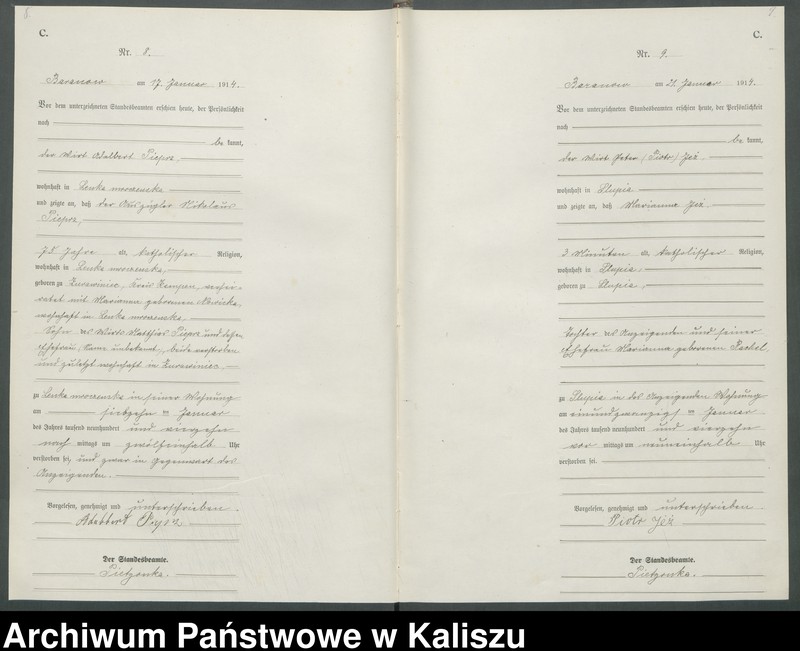 C.
Nr. 8.
am 17. Januar 1914.
Vor dem unterzeichneten Standesbeamten erschien heute, der Persönlichkeit
nach
be kannt,
der Wirt Adalbert
wohnhaft in Lenka mroczenska
und zeigte an, daß der Auszügler Nikolaus
75 Jahre alt, katholischer Religion,
wohnhaft in Lenka mroczenska,
geboren zu Kreis Kempen, verhei-
ratet mit Marianna geborenen
wohnhaft in Lenka mroczenska,
Sohn des Wirts Matthias und dessen
Ehefrau, (Name unbekannt), beide verstorben
und zuletzt wohnhaft in
zu Lenka mroczenska in seiner Wohnung
am siebzehn ten Januar
des Jahres tausend neunhundert und vierzehn
nach mittags um zwölfeinhalb Uhr
verstorben sei, und zwar in Gegenwart des
Anzeigenden.
Vorgelesen, genehmigt und unterschrieben
Der Standesbeamte.
Pietzonka.
C.
Nr. 9.
am 21. Januar 1914.
Vor dem unterzeichneten Standesbeamten erschien heute, der Persönlichkeit
nach
be kannt,
der Wirt Peter (Piotr) Jeż
wohnhaft in Slupia
und zeigte an, daß Marianna Jeż
3 Minuten alt, katholischer Religion,
wohnhaft in Slupia,
geboren zu Slupia,
Tochter des Anzeigenden und seiner
Ehefrau Marianna geborenen
zu Slupia in des Anzeigenden Wohnung
am einundzwanzigs ten Januar
des Jahres tausend neunhundert und vierzehn
vor mittags um neuneinhalb Uhr
verstorben sei.
Vorgelesen, genehmigt und unterschrieben
Piotr Jeż
Der Standesbeamte.
Pietzonka.
Archiwum Państwowe w Kaliszu